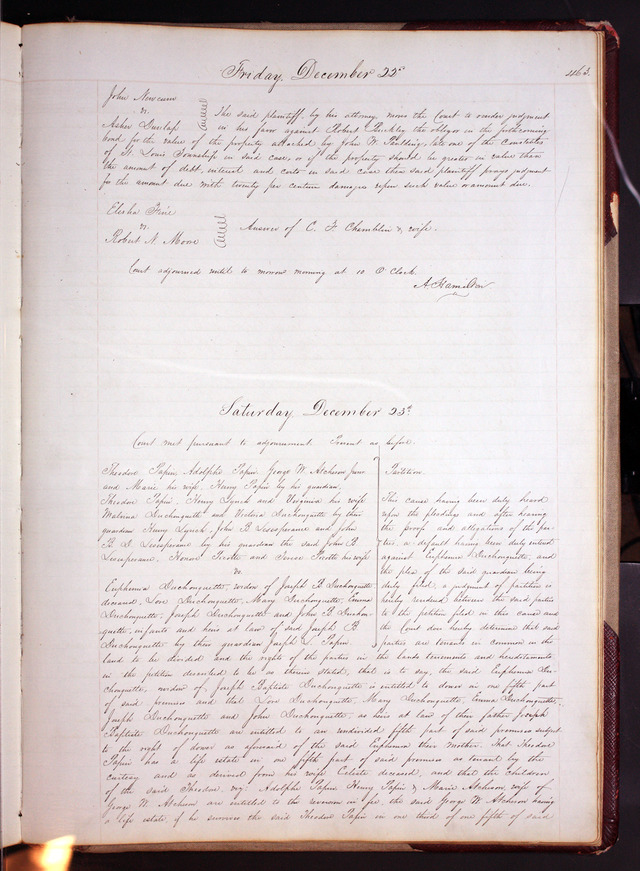 Friday, December 22d
463.
John Newcum
vs.
Asher Dunlap
The said plaintiff, by his attorney, moves the Court to render judgment
in his favor against Robert Buckley the obligor in the forthcoming
bond for the value of the property attached by John W. Paulding, late one of the Constables
of St. Louis Township in said case, or if the property should be greater in value than
the amount of debt, interest and costs in said case then said plaintiff prays judgment
for the amount due with twenty per centum damages upon such value or amount due.
Elisha Fine
vs.
Robert N. Moore
Answer of C. F. Chamblin & wife.
Court adjourned until to morrow morning at 10 O'Clock.
A. Hamilton
Saturday, December 23d
Court met pursuant to adjournment. Present as before.
Theodore Papin, Adolphe Papin, George W. Atchison Junr
and Marie his wife, Henry Papin by his guardian
Theodore Papin, Henry Lynch and Virginia his wife
Malvina Duchouquette and Victoria Duchouquette by their
guardian Henry Lynch, John B. Lesesperance and John
B. D. Lesesperance by his guardian the said John B.
Lesesperance, Honore Picotte and Picotte his wife
vs.
Euphemia Duchouquette, widow of Joseph B. Duchouquette
deceased, Love Duchouquette, Mary Duchouquette, Emma
Duchouquette, Joseph Duchouquette and John B. Duchou-
quette, infants and heirs at law of said Joseph B.
Duchouquette by their guardian Joseph L. Papin
Partition.
This cause having been duly heard
upon the pleadings and after hearing
the proof and allegations of the par-
ties, a default having been duly entered
against Euphemia Duchouquette, and
the plea of the said guardian being
duly filed, a judgment of partition is
hereby rendered between the said parties
to the petition filed in this cause and
the Court does hereby determine that said
parties are tenants in common in the
land to be divided and the rights of the parties in the lands tenements and hereditaments
in the petition described to be as therein stated, that is to say, the said Euphemia Du-
chouquette, widow of Joseph Baptiste Duchouquette is entitled to dower in one fifth part
of said premises and that Love Duchouquette, Mary Duchouquette, Emma Duchouquette,
Joseph Duchouquette and John Duchouquette, as heirs at law of their father Joseph
Baptiste Duchouquette are entitled to an undivided fifth part of said premises subject
to the right of dower as aforesaid of the said Euphemia their mother. That Theodore
Papin has a life estate in one fifth part of said premises as tenant by the
curtesy and as derived from his wife Celeste deceased, and that the children
of the said Theodore, viz: Adolphe Papin, Henry Papin & Marie Atchison wife of
George W. Atchison are entitled to the reversion in fee, the said George W. Atchison having
a life estate if he survives the said Theodore Papin in one third of one fifth of said